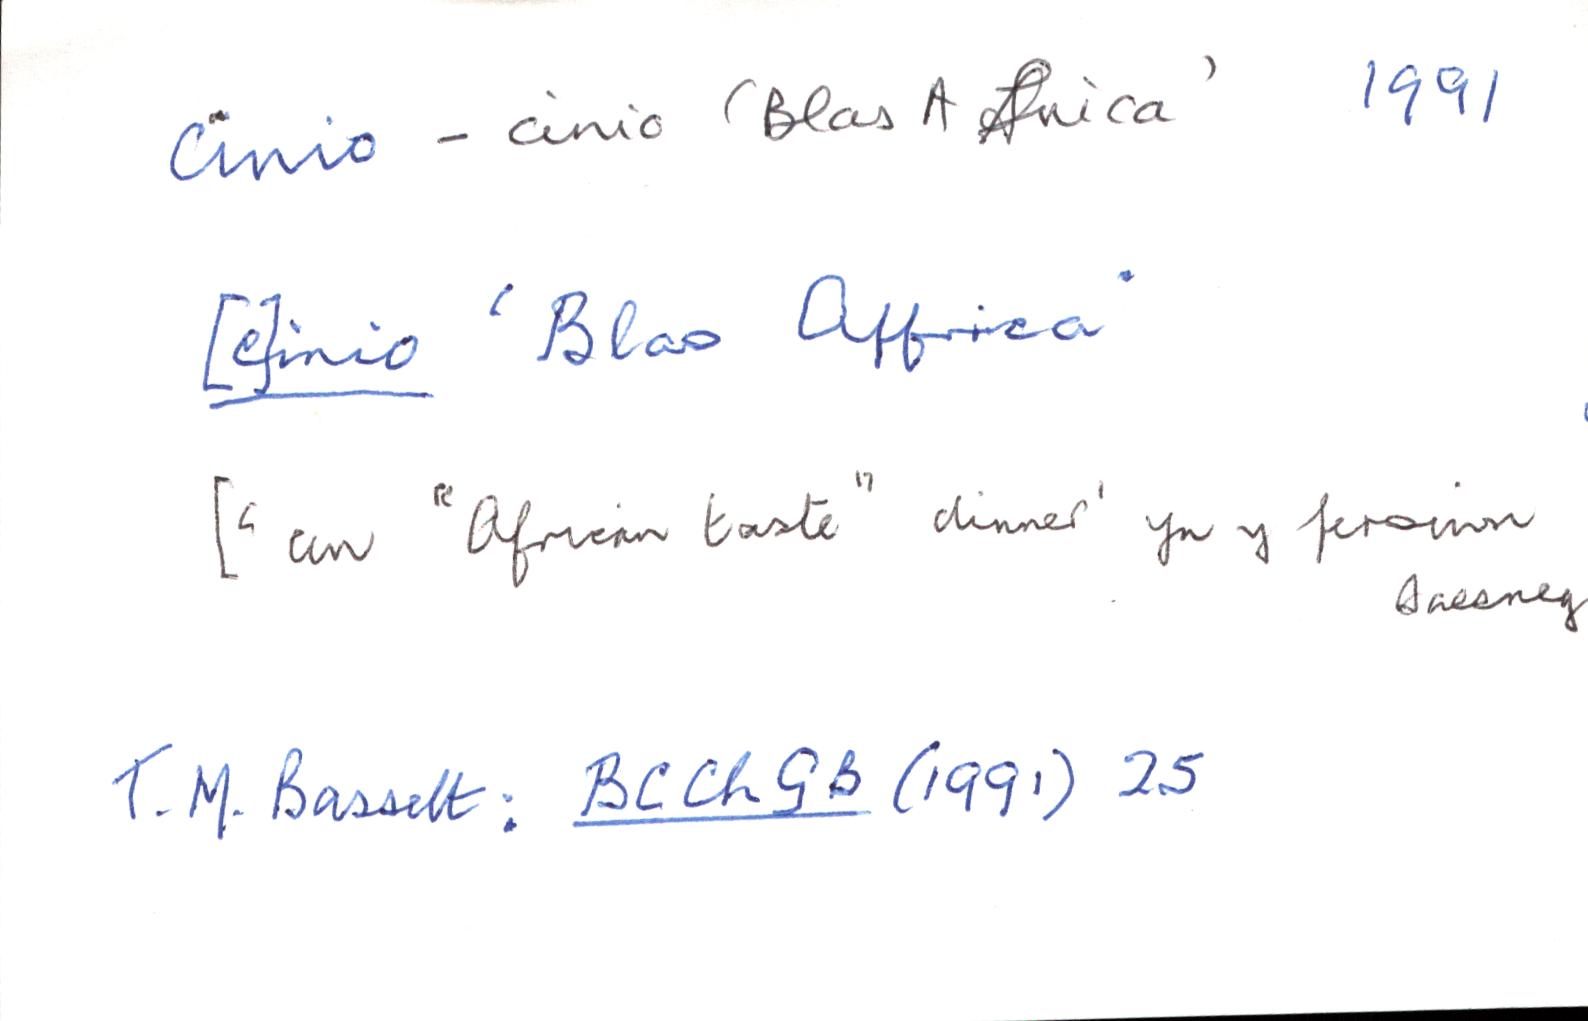 Cinio – cinio 'Blas Affrica' 1991
[c]inio 'Blas Affrica'
['an "African taste" dinner' yn y fersiwn
Saesneg
T. M. Bassett: BCChGB (1991) 25